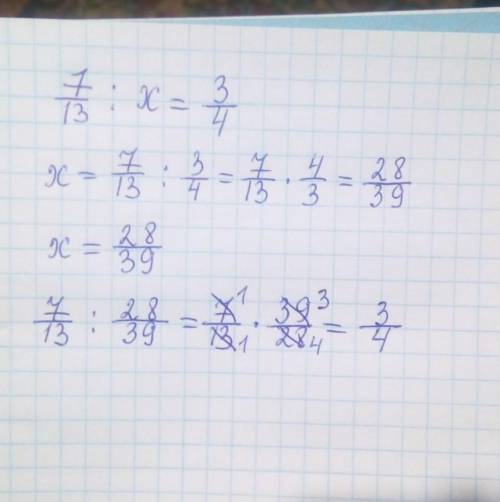 7/13 : x = 3/4
x = 7/13 : 3/4 = 7/13 · 4/3 = 28/39
x = 28/39
7/13 : 28/39 = 7 1/13 1 · 39 3/28 4 = 3/4